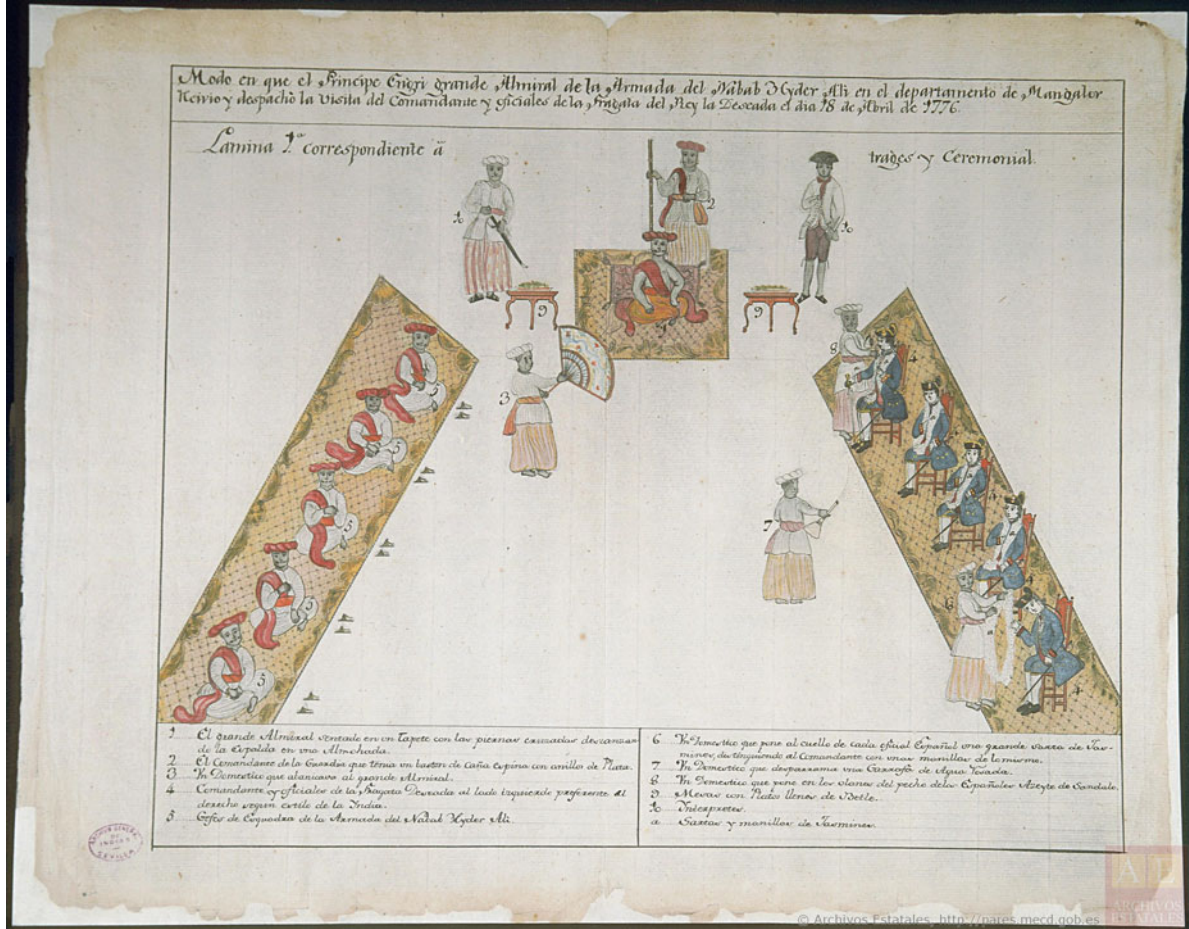 Modo en que el Principe grande Almiral de la Armada del Nabab Hyder Ali en el departamento de Mangalor
Reivio y despachò la visita del Comandante y oficiales de la Fragata del Rey la Deseada el dia 18 de Abril de 1776.
Lamina 1.ª correspondiente â trages y Ceremonial.
1 El grande Almiral sentado en un Tapete con las piernas cruzadas descansan-
do la Espalda en una Almohada.
2 El Comandante de la Guardia que tenia un baston de Caña espina con anillos de Plata.
3 Un Domestico que abanicava al grande Almiral.
4 Comandante y oficiales de la Fragata Deseada al lado izquierdo preferente al
derecho segun estilo de la India.
5 Gefes de Esquadra de la Armada del Nabab Hyder Ali.
6 Un Domestico que pone al cuello de cada oficial Español una grande sarta de Jas-
mines, distinguiendo al Comandante con unas manillas de lo mismo.
7 Un Domestico que desparrama una Garrafa de Agua Rosada.
8 Un Domestico que pone en los olanes del pecho de los Españoles Azeyte de Sandalo.
9 Mesas con Platos llenos de Betle.
10 Interpretes.
a Sartas y manillas de Jasmines.
ARCHIVO GENERAL
DE
INDIAS
SEVILLA
© Archivos Estatales, http://pares.mecd.gob.es
ARCHIVOS
ESTATALES